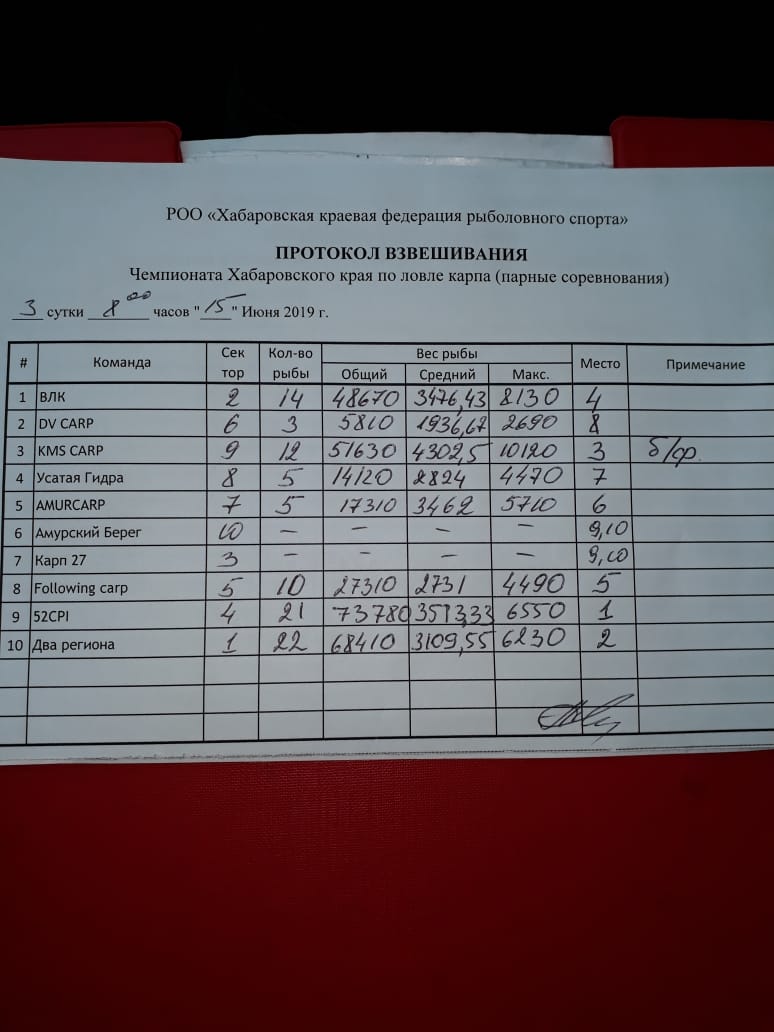 РОО «Хабаровская краевая федерация рыболовного спорта»
ПРОТОКОЛ ВЗВЕШИВАНИЯ
Чемпионата Хабаровского края по ловле карпа (парные соревнования)
3 сутки 8 00 часов "15" Июня 2019 г.
# Команда Сек тор Кол-во рыбы Вес рыбы Место Примечание
Общий Средний Макс.
1 ВЛК 2 14 48670 3476,43 8130 4
2 DV CARP 6 3 5810 1936,67 2690 8
3 KMS CARP 9 12 51630 4302,5 10120 3 б/ф.
4 Усатая Гидра 8 5 14120 2824 4470 7
5 AMURCARP 7 5 17310 3462 5710 6
6 Амурский Берег 10 – – – – 9,10
7 Карп 27 3 – – – – 9,10
8 Following carp 5 10 27310 2731 4490 5
9 52CPI 4 21 73780 3513,33 6550 1
10 Два региона 1 22 68410 3109,55 6230 2